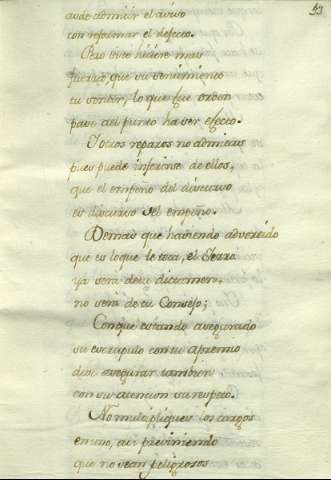 53
aude admitir el aviso
con reformar el defecto.
Pero si te hiciere mas
fuerza, que su sentimiento
tu sentir, lo que fue orden
pase al punto ha ser efecto.
Y otros reparos no admitas
pues puede inferirse de ellos,
que el empeño del discurso
es discurso del empeño.
Demas que haviendo advertido
que es lo que le toca, el
ya sera de tu dictamen,
no sera de tu Consejo;
Conque estando asegurado
su escrupulo con tu apremio
deve asegurar tambien
con su atencion su respeto.
No multipliques los cargos
en uno, asi previniendo
que no sean peligrosos